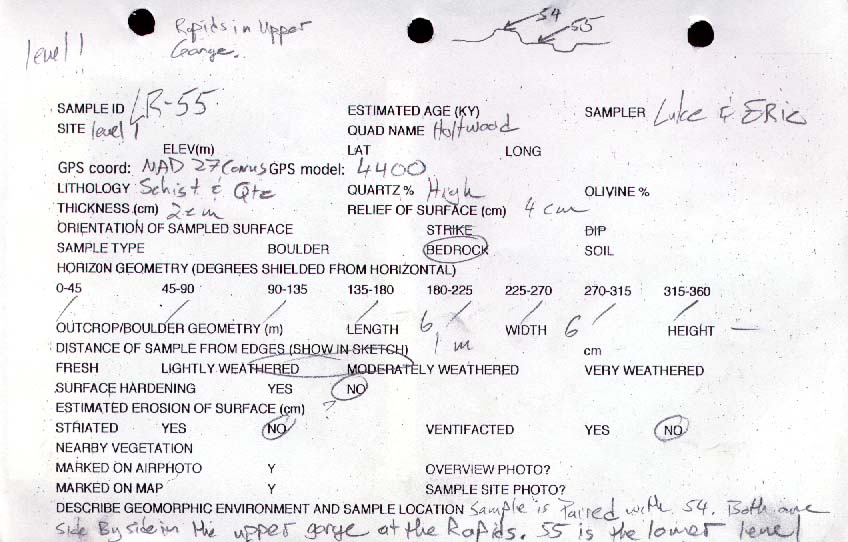 level 1
Rapids in Upper
Gorge.
54
55
SAMPLE ID LR-55 ESTIMATED AGE (KY) SAMPLER Luke & ERic
SITE level 1 QUAD NAME Holtwood
ELEV(m) LAT LONG
GPS coord: NAD 27 Conus GPS model: 4400
LITHOLOGY Schist & Qtz QUARTZ % High OLIVINE %
THICKNESS (cm) 2cm RELIEF OF SURFACE (cm) 4 cm
ORIENTATION OF SAMPLED SURFACE STRIKE DIP
SAMPLE TYPE BOULDER BEDROCK SOIL
HORIZON GEOMETRY (DEGREES SHIELDED FROM HORIZONTAL)
0-45 45-90 90-135 135-180 180-225 225-270 270-315 315-360
/ / / / / / / /
OUTCROP/BOULDER GEOMETRY (m) LENGTH 6 WIDTH 6 HEIGHT —
DISTANCE OF SAMPLE FROM EDGES (SHOW IN SKETCH) 1 m cm
FRESH LIGHTLY WEATHERED MODERATELY WEATHERED VERY WEATHERED
SURFACE HARDENING YES NO
ESTIMATED EROSION OF SURFACE (cm) ?
STRIATED YES NO VENTIFACTED YES NO
NEARBY VEGETATION
MARKED ON AIRPHOTO Y OVERVIEW PHOTO?
MARKED ON MAP Y SAMPLE SITE PHOTO?
DESCRIBE GEOMORPHIC ENVIRONMENT AND SAMPLE LOCATION Sample is Paired with 54. Both are
side By side in the upper gorge at the Rapids. 55 is the lower level